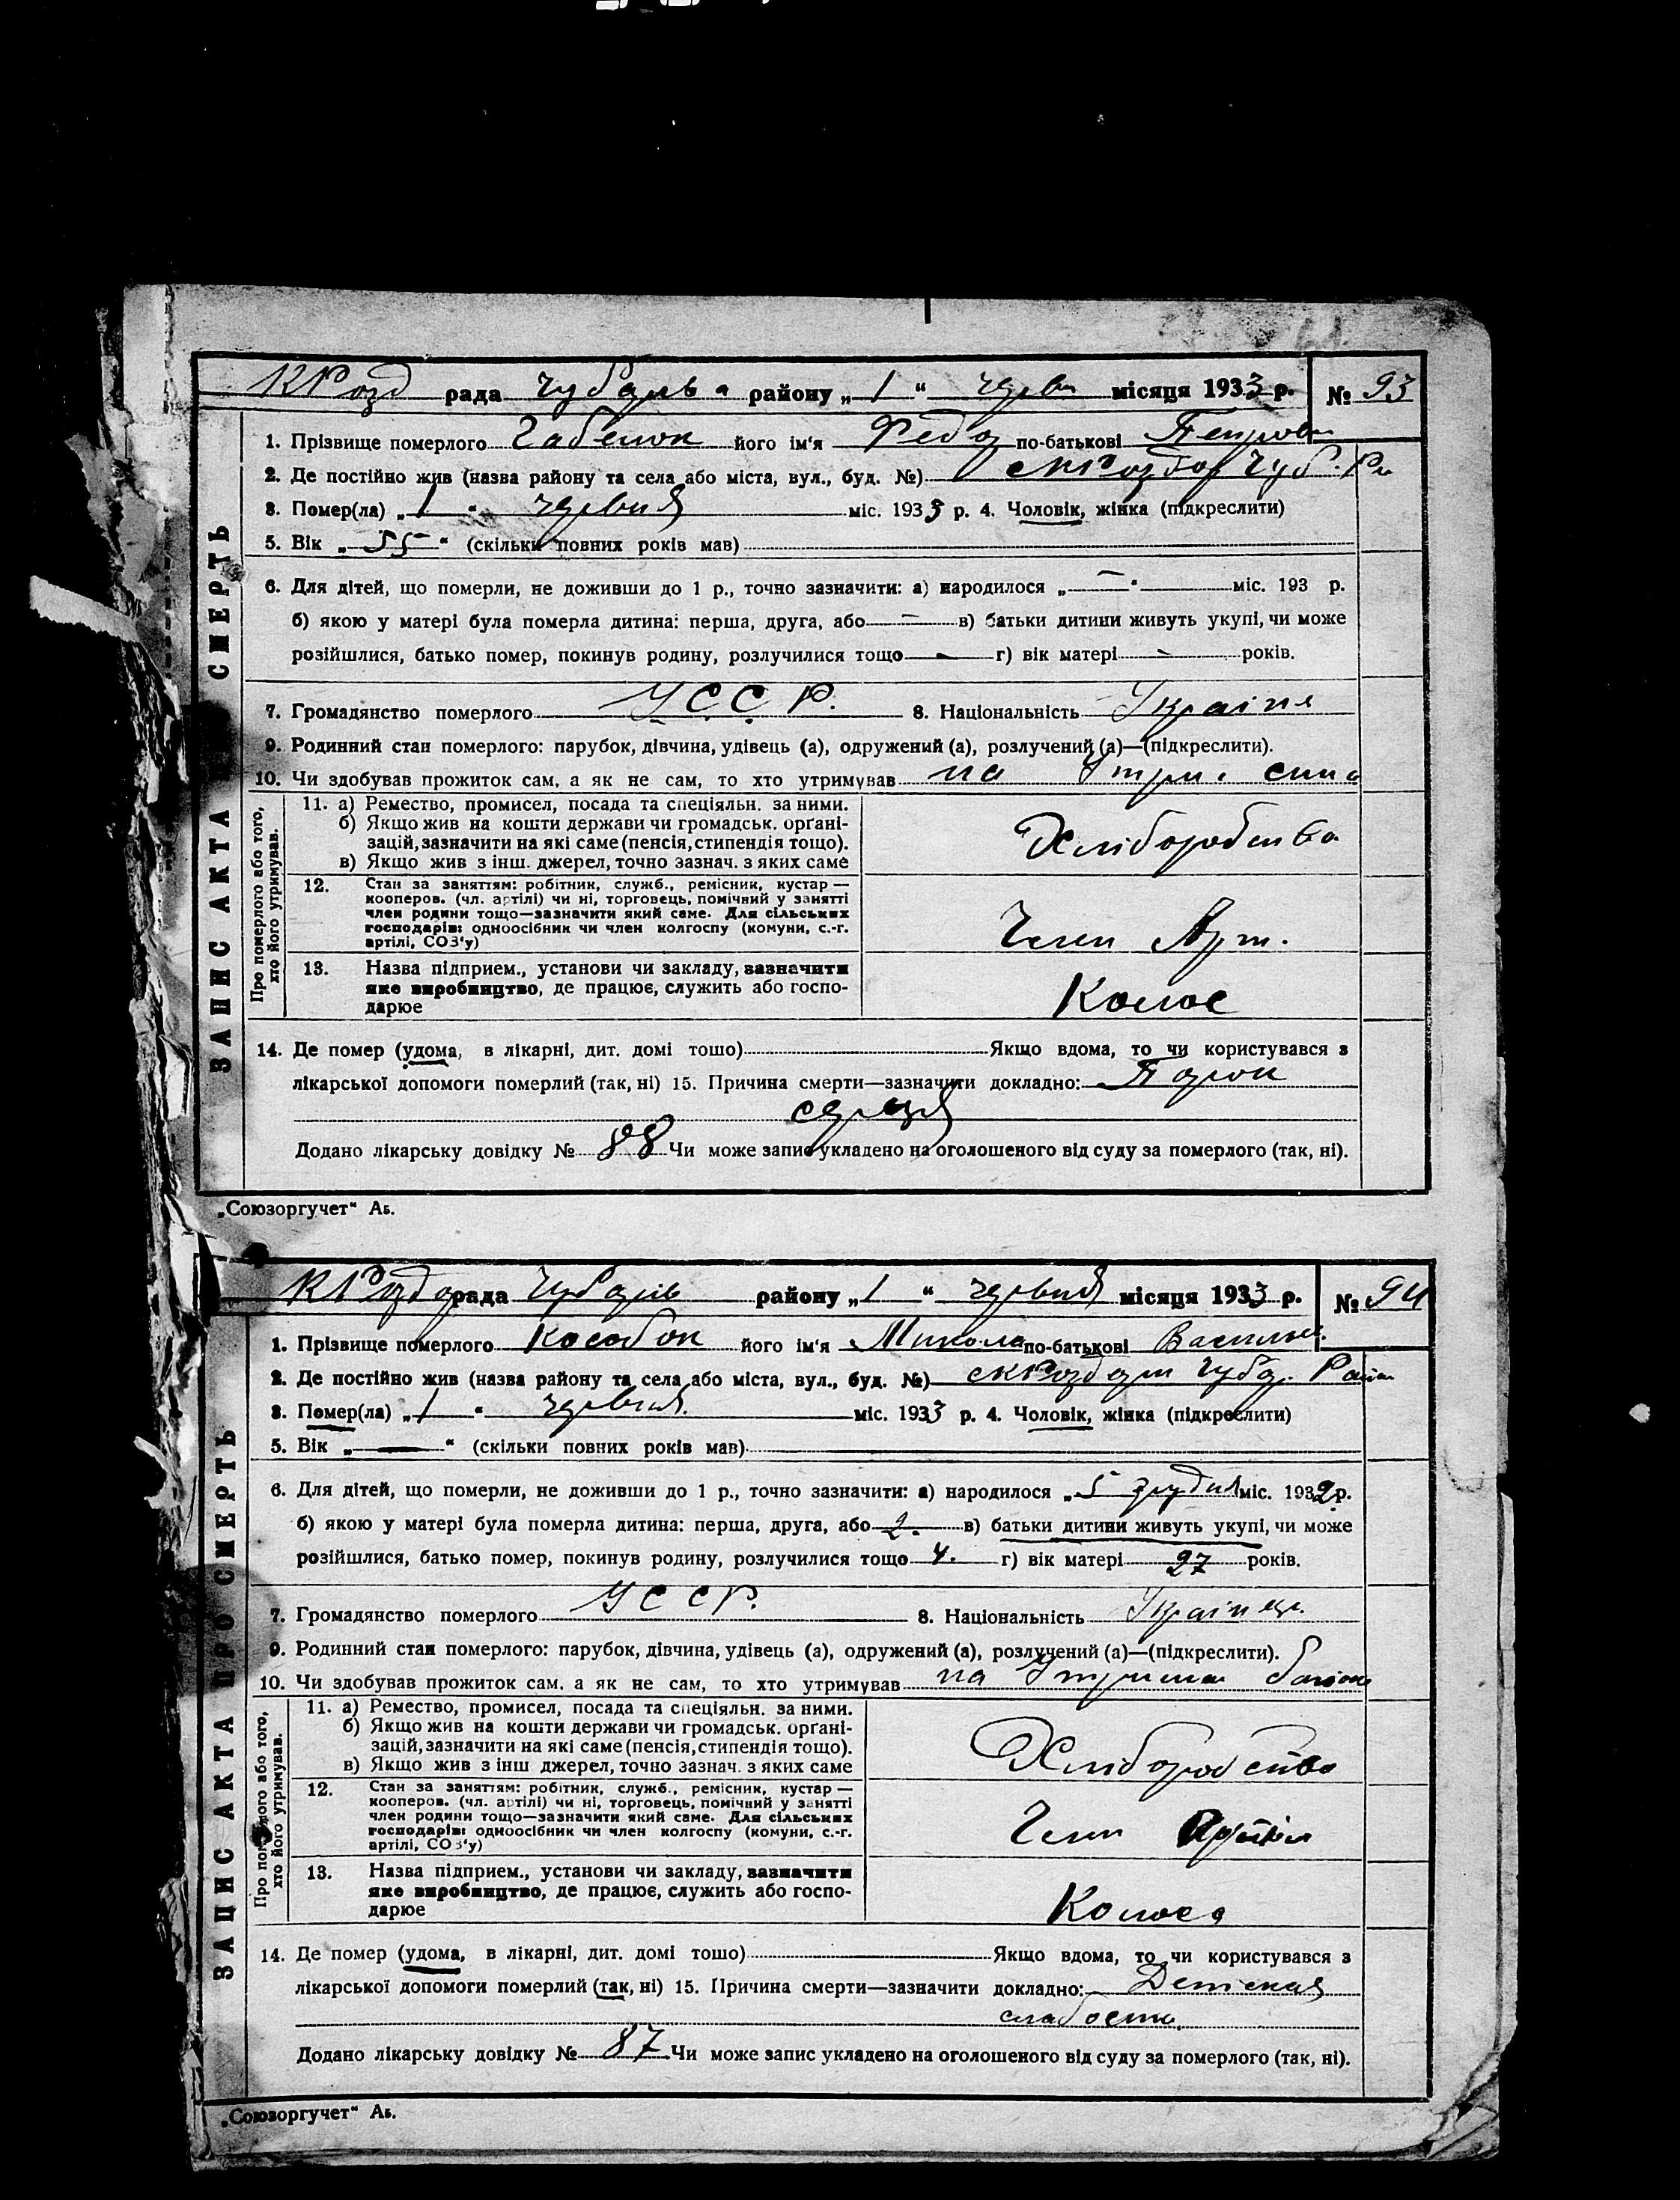 рада района „ 1 “ місяця 1933 р. № 93
1. Прізвище померлого його ім'я по-батькові
2. Де постійно жив (назва району та села або міста, вул., буд. №)
3. Помер(ла) „ 1 “ червня міс. 1933 р. 4. Чоловік, жінка (підкреслити)
5. Вік „ 55 “ (скільки повних років мав)
6. Для дітей, що померли, не доживши до 1 р., точно зазначити: а) народилося „ — “ міс. 193 р.
б) якою у матері була померла дитина: перша, друга, або — в) батьки дитини живуть укупі, чи може
розійшлися, батько помер, покинув родину, розлучилися тощо — г) вік матері — років.
ЗАПИС АКТА СМЕРТЬ
7. Громадянство померлого У.С.С.Р. 8. Національність
9. Родинний стан померлого: парубок, дівчина, удівець (а), одружений (а), розлучений (а)—(підкреслити).
10. Чи здобував прожиток сам, а як не сам, то хто утримував на сина
Про померлого або того, хто його утримував.
11. а) Ремество, промисел, посада та спеціяльн. за ними.
б) Якщо жив на кошти держави чи громадськ. орґані-
зацій, зазначити на які саме (пенсія, стипендія тощо).
в) Якщо жив з інш. джерел, точно зазнач. з яких саме
Хліборобство
12. Стан за заняттям: робітник, служб., ремісник, кустар —
кооперов. (чл. артілі) чи ні, торговець, помічний у занятті
член родини тощо—зазначити який саме. Для сільських
господарів: одноосібник чи член колгоспу (комуни, с.-г.
артілі, СОЗ'у)
Член Арт.
13. Назва підприєм., установи чи закладу, зазначити
яке виробництво, де працює, служить або госпо-
дарює
Колос
14. Де помер (удома, в лікарні, дит. домі тошо) Якщо вдома, то чи користувався з
лікарської допомоги померлий (так, ні) 15. Причина смерти—зазначити докладно: Порок
серця
Додано лікарську довідку № 88 Чи може запис укладено на оголошеного від суду за померлого (так, ні).
„Союзоргучет“ Аь.
рада району „ 1 “ червня місяця 1933 р. № 94
1. Прізвище померлого Кособок його ім'я Микола по-батькові
2. Де постійно жив (назва району та села або міста, вул., буд. №)
3. Помер(ла) „ 1 “ червня міс. 1933 р. 4. Чоловік, жінка (підкреслити)
5. Вік „ — “ (скільки повних років мав)
6. Для дітей, що померли, не доживши до 1 р., точно зазначити: а) народилося „ 5 грудня міс. 1932 р.
б) якою у матері була померла дитина: перша, друга, або 2. в) батьки дитини живуть укупі, чи може
розійшлися, батько помер, покинув родину, розлучилися тощо 4. г) вік матері 27 років.
ЗАПИС АКТА ПРО СМЕРТЬ
7. Громадянство померлого УССР. 8. Національність
9. Родинний стан померлого: парубок, дівчина, удівець (а), одружений (а), розлучений (а)—(підкреслити).
10. Чи здобував прожиток сам, а як не сам, то хто утримував на
Про померлого або того, хто його утримував.
11. а) Ремество, промисел, посада та спеціяльн. за ними.
б) Якщо жив на кошти держави чи громадськ. орґані-
зацій, зазначити на які саме (пенсія, стипендія тощо).
в) Якщо жив з інш джерел, точно зазнач. з яких саме
Хліборобство
12. Стан за заняттям: робітник, служб., ремісник, кустар —
кооперов. (чл. артілі) чи ні, торговець, помічний у занятті
член родини тощо—зазначити який саме. Для сільських
господарів: одноосібник чи член колгоспу (комуни, с.-г.
артілі, СОЗ'у)
Член Артіли
13. Назва підприєм., установи чи закладу, зазначити
яке виробництво, де працює, служить або госпо-
дарює
Колоса
14. Де помер (удома, в лікарні, дит. домі тошо) Якщо вдома, то чи користувався з
лікарської допомоги померлий (так, ні) 15. Причина смерти—зазначити докладно: Детская
слабость.
Додано лікарську довідку № 87 Чи може запис укладено на оголошеного від суду за померлого (так, ні).
„Союзоргучет“ Аь.